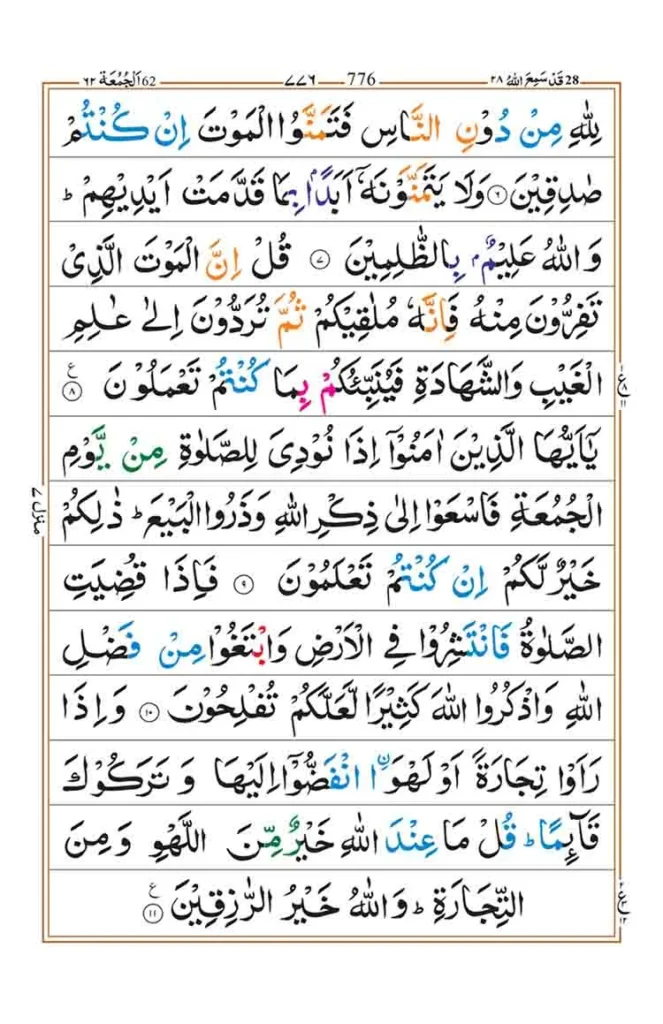 28 قَدْ سَمِعَ اللّٰهُ ٢٨ ٧٧٦ 776 62 اَلْجُمُعَة ٦٢
لِلّٰهِ مِنْ دُوْنِ النَّاسِ فَتَمَنَّوُا الْمَوْتَ اِنْ كُنْتُمْ
صٰدِقِيْنَ ۝٦ وَلَا يَتَمَنَّوْنَهٗۤ اَبَدًۢا بِمَا قَدَّمَتْ اَيْدِيْهِمْ ؕ
وَاللّٰهُ عَلِيْمٌۢ بِالظّٰلِمِيْنَ ۝٧ قُلْ اِنَّ الْمَوْتَ الَّذِىْ
تَفِرُّوْنَ مِنْهُ فَاِنَّهٗ مُلٰقِيْكُمْ ثُمَّ تُرَدُّوْنَ اِلٰى عٰلِمِ
الْغَيْبِ وَالشَّهَادَةِ فَيُنَبِّئُكُمْ بِمَا كُنْتُمْ تَعْمَلُوْنَ ۝٨ ع
ع ٨ ١١
يٰۤاَيُّهَا الَّذِيْنَ اٰمَنُوْۤا اِذَا نُوْدِىَ لِلصَّلٰوةِ مِنْ يَّوْمِ
الْجُمُعَةِ فَاسْعَوْا اِلٰى ذِكْرِ اللّٰهِ وَذَرُوا الْبَيْعَ ؕ ذٰلِكُمْ
منزل ٧
خَيْرٌ لَّكُمْ اِنْ كُنْتُمْ تَعْلَمُوْنَ ۝٩ فَاِذَا قُضِيَتِ
الصَّلٰوةُ فَانْتَشِرُوْا فِى الْاَرْضِ وَابْتَغُوْا مِنْ فَضْلِ
اللّٰهِ وَاذْكُرُوا اللّٰهَ كَثِيْرًا لَّعَلَّكُمْ تُفْلِحُوْنَ ۝١٠ وَاِذَا
رَاَوْا تِجَارَةً اَوْ لَهْوَا ۨانْفَضُّوْۤا اِلَيْهَا وَتَرَكُوْكَ
قَآئِمًا ؕ قُلْ مَا عِنْدَ اللّٰهِ خَيْرٌ مِّنَ اللَّهْوِ وَمِنَ
التِّجَارَةِ ؕ وَاللّٰهُ خَيْرُ الرّٰزِقِيْنَ ۝١١ ع